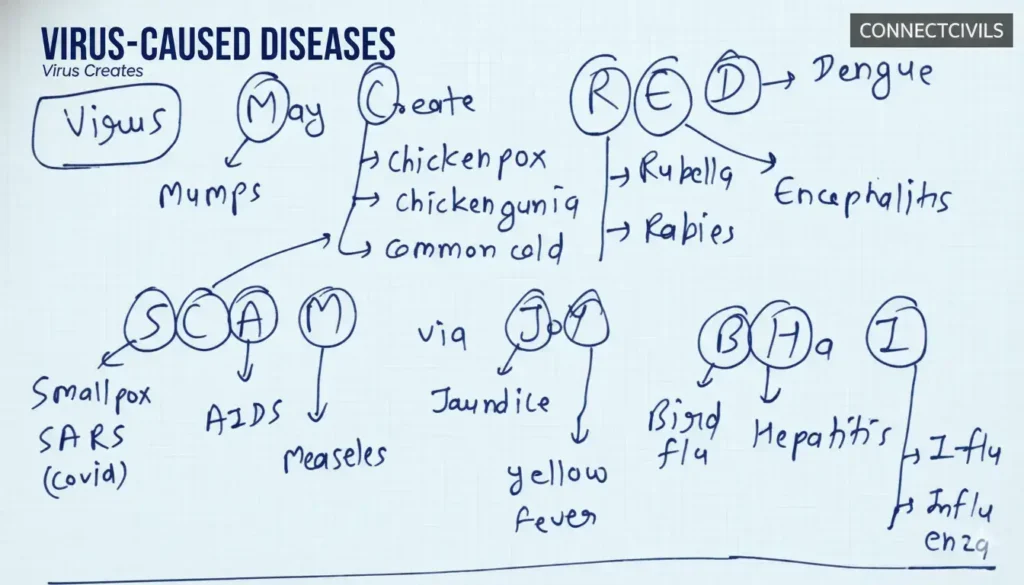 VIRUS-CAUSED DISEASES
Virus Creates
CONNECTCIVILS
Virus
May Create
RED → Dengue
Mumps
Chickenpox
Chickengunia
Common cold
Rubella
Rabies
Encephalitis
SCA M via JoY BHa I
Smallpox
SARS
(Covid)
AIDS
Measeles
Jaundice
yellow
fever
Bird
flu
Hepatitis
I-flu
Influ
enza